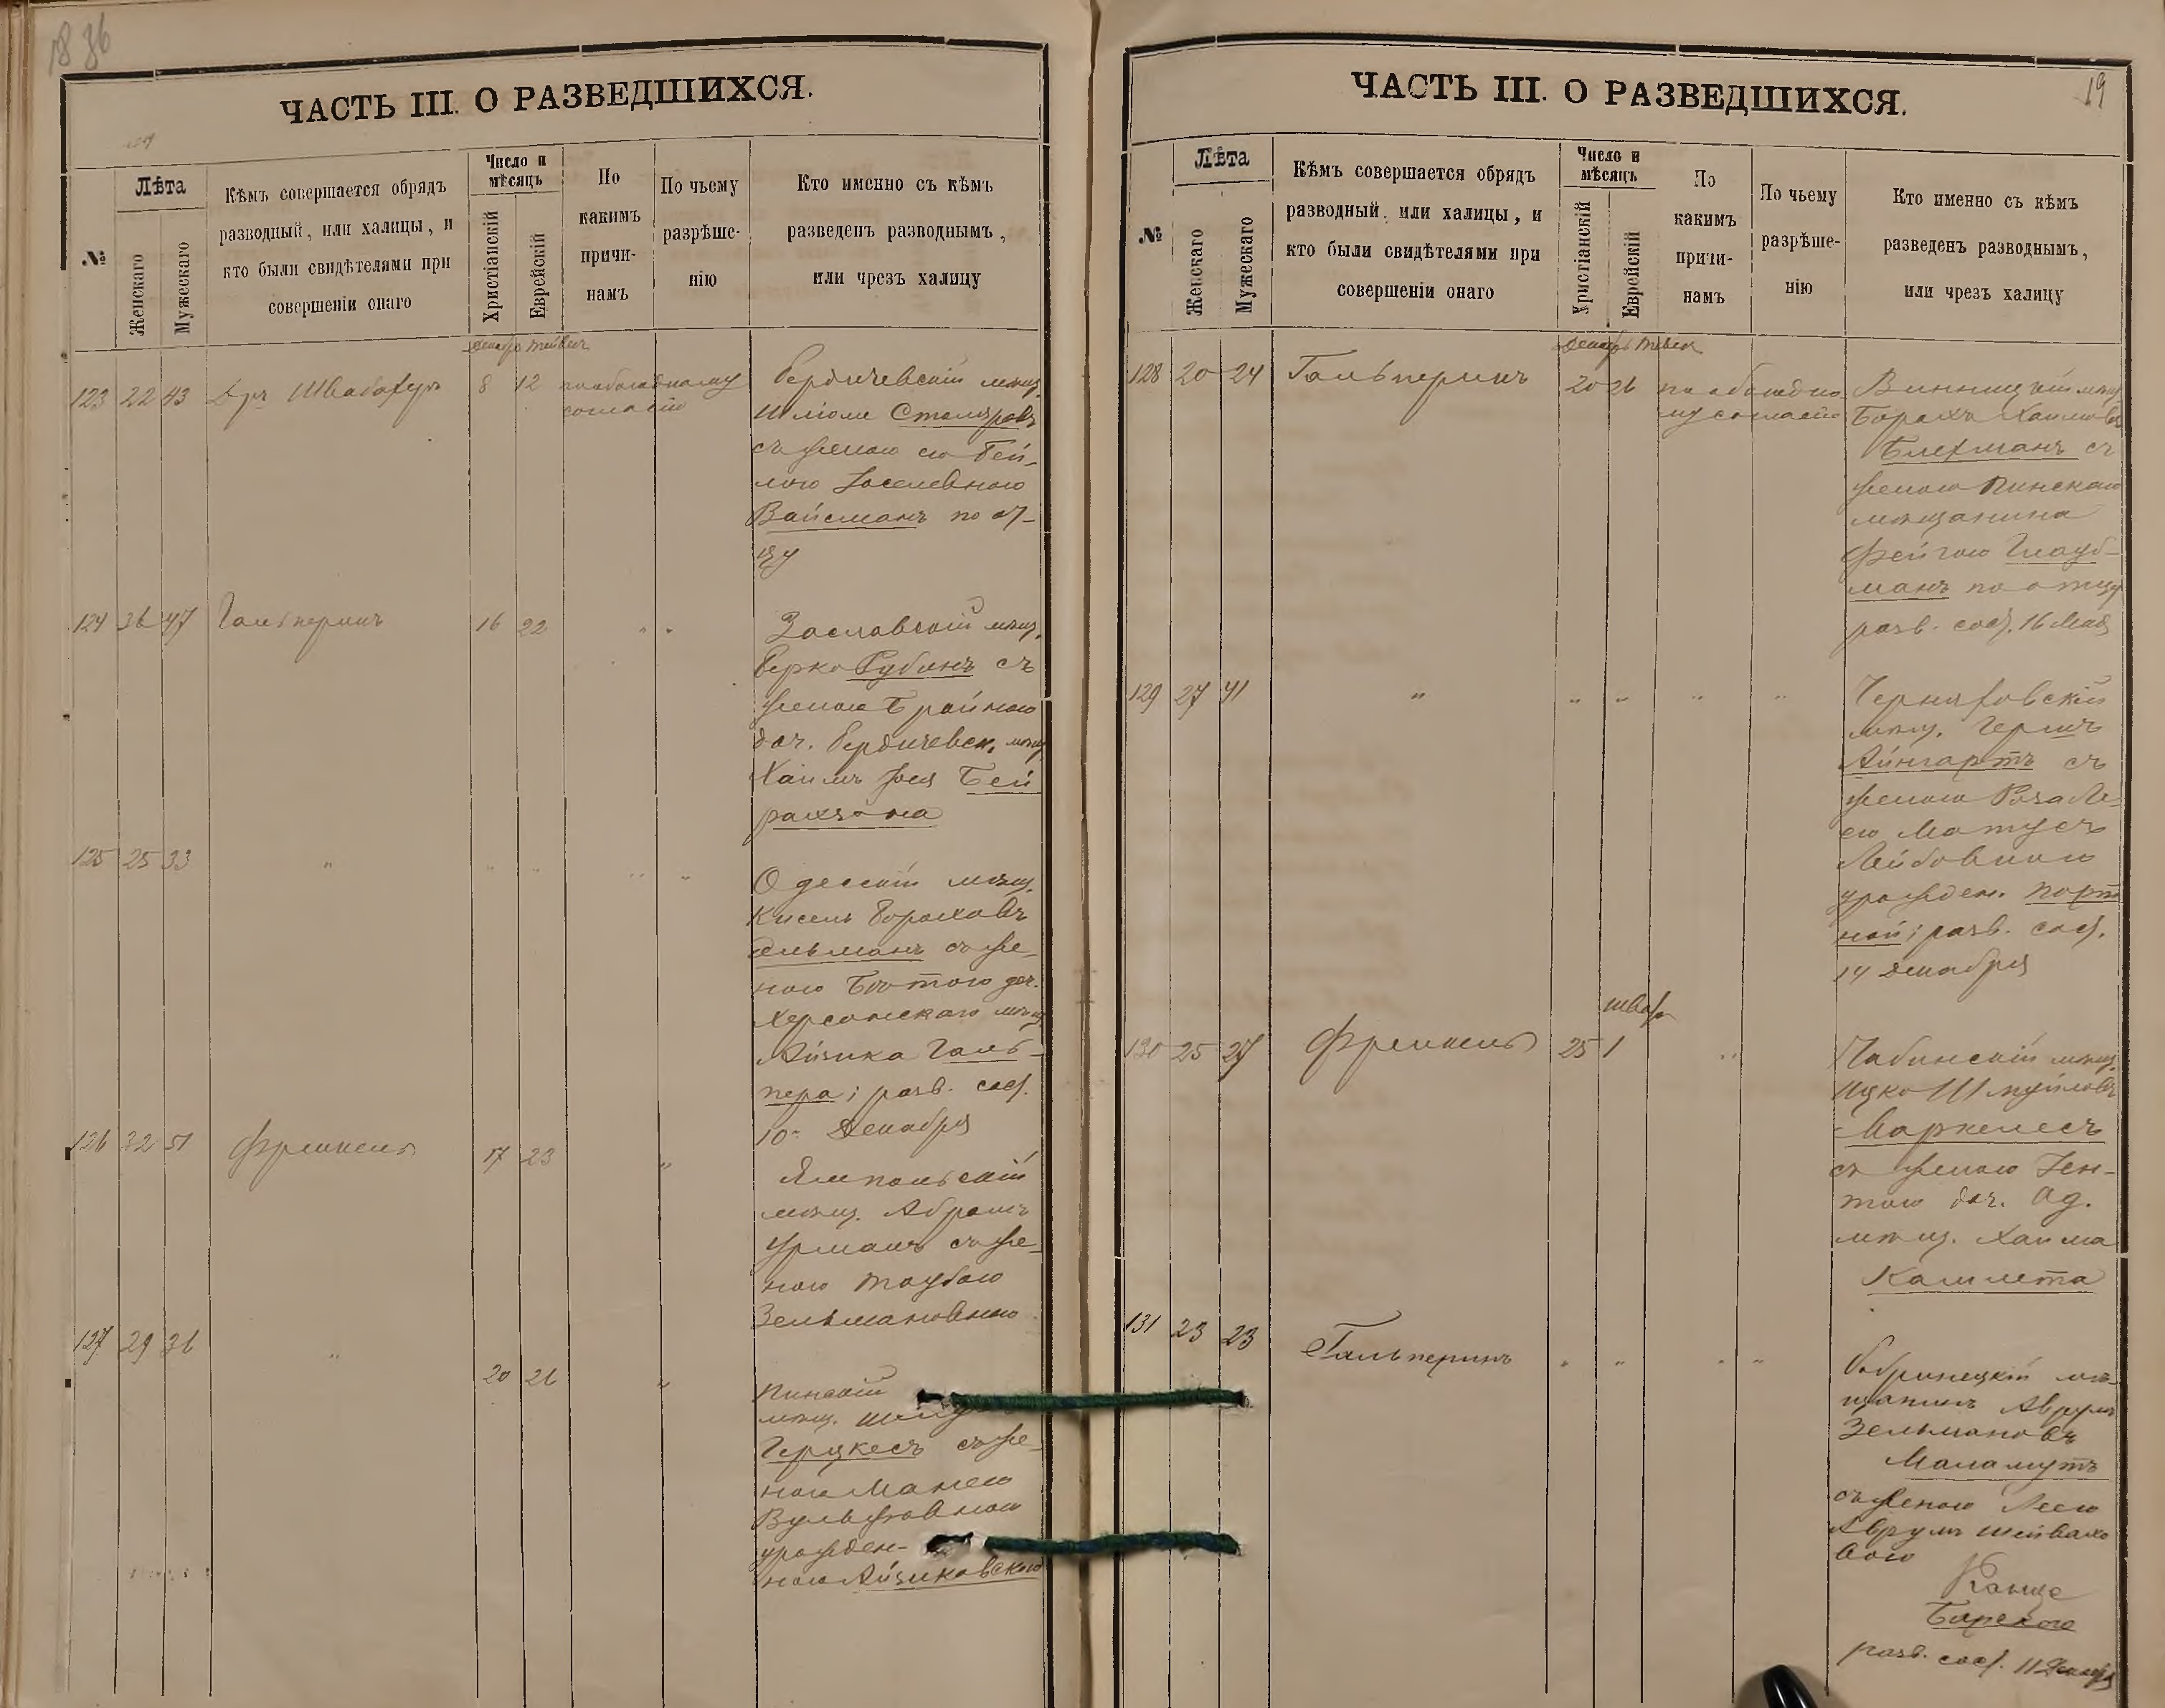 1836
ЧАСТЬ III. О РАЗВЕДШИХСЯ.
№
Лѣта
Женскаго
Мужескаго
Кѣмъ совершается обрядъ
разводный, или халицы, и
кто были свидѣтелями при
совершеніи онаго
Число и
мѣсяцъ
Христіанскій
Еврейскій
По
какимъ
причи-
намъ
По чьему
разрѣше-
нію
Кто именно съ кѣмъ
разведенъ разводнымъ,
или чрезъ халицу
123 22 43 Др. Швабахеръ 8 12 по обоюдному
согласію
Бердичевскій мѣщ.
Шліома Столяровъ
съ женою его Бей-
лою Іоселевною
Вайсманъ по от-
цу
124 36 47 Гальперинъ 16 22 " "
Заславскій мѣщ.
Берко Рубинъ съ
женою Брайною
доч. Бердичевск. мѣщ.
Хаимъ Іося Бей
125 25 33 " " " " "
Одесскій мѣщ.
Кисель Бороховъ
съ же-
ною доч.
Херсонскаго мѣщ.
Айзика Галь-
пера; разв. сост.
10 Декабря
126 32 51 Френкель 17 23 "
Ямпольскій
мѣщ. Абрамъ
Урманъ съ же-
ною Таубою
Зельмановною
127 29 36 " 20 26 "
Пинскій
мѣщ.
Герцкесъ съ же-
ною Манею
Вульфовною
урожден-
ною Айзиковскою
ЧАСТЬ III. О РАЗВЕДШИХСЯ.
19
№
Лѣта
Женскаго
Мужескаго
Кѣмъ совершается обрядъ
разводный, или халицы, и
кто были свидѣтелями при
совершеніи онаго
Число и
мѣсяцъ
Христіанскій
Еврейскій
По
какимъ
причи-
намъ
По чьему
разрѣше-
нію
Кто именно съ кѣмъ
разведенъ разводнымъ,
или чрезъ халицу
128 20 24 Гальперинъ 20 26 по обоюдно
му согласію
Винницкій мѣщ.
Борохъ Хаимовъ
Блехманъ съ
женою Пинскаго
мѣщанина
Фейгою Глауб-
манъ по отцу
разв. сост. 16 Мая
129 27 41 " " " " "
Черняховскій
мѣщ. Гершъ
Айнгартъ съ
женою Роза Ле-
ею Матусъ
Лейбовною
урожден. Порт
ной; разв. сост.
14 Декабря
130 25 27 Френкель 25 1 "
мѣщ.
Ицко Шмуйловъ
Маркелесъ
съ женою Ген-
тою доч. Од.
мѣщ. Хаима
131 23 23 Гальперинъ " " " "
Бобринецкій мѣ-
щанинъ Аврумъ
Зельмановъ
Маламутъ
съ женою Леею
Аврумъ
разв. сост. 11 Декабря